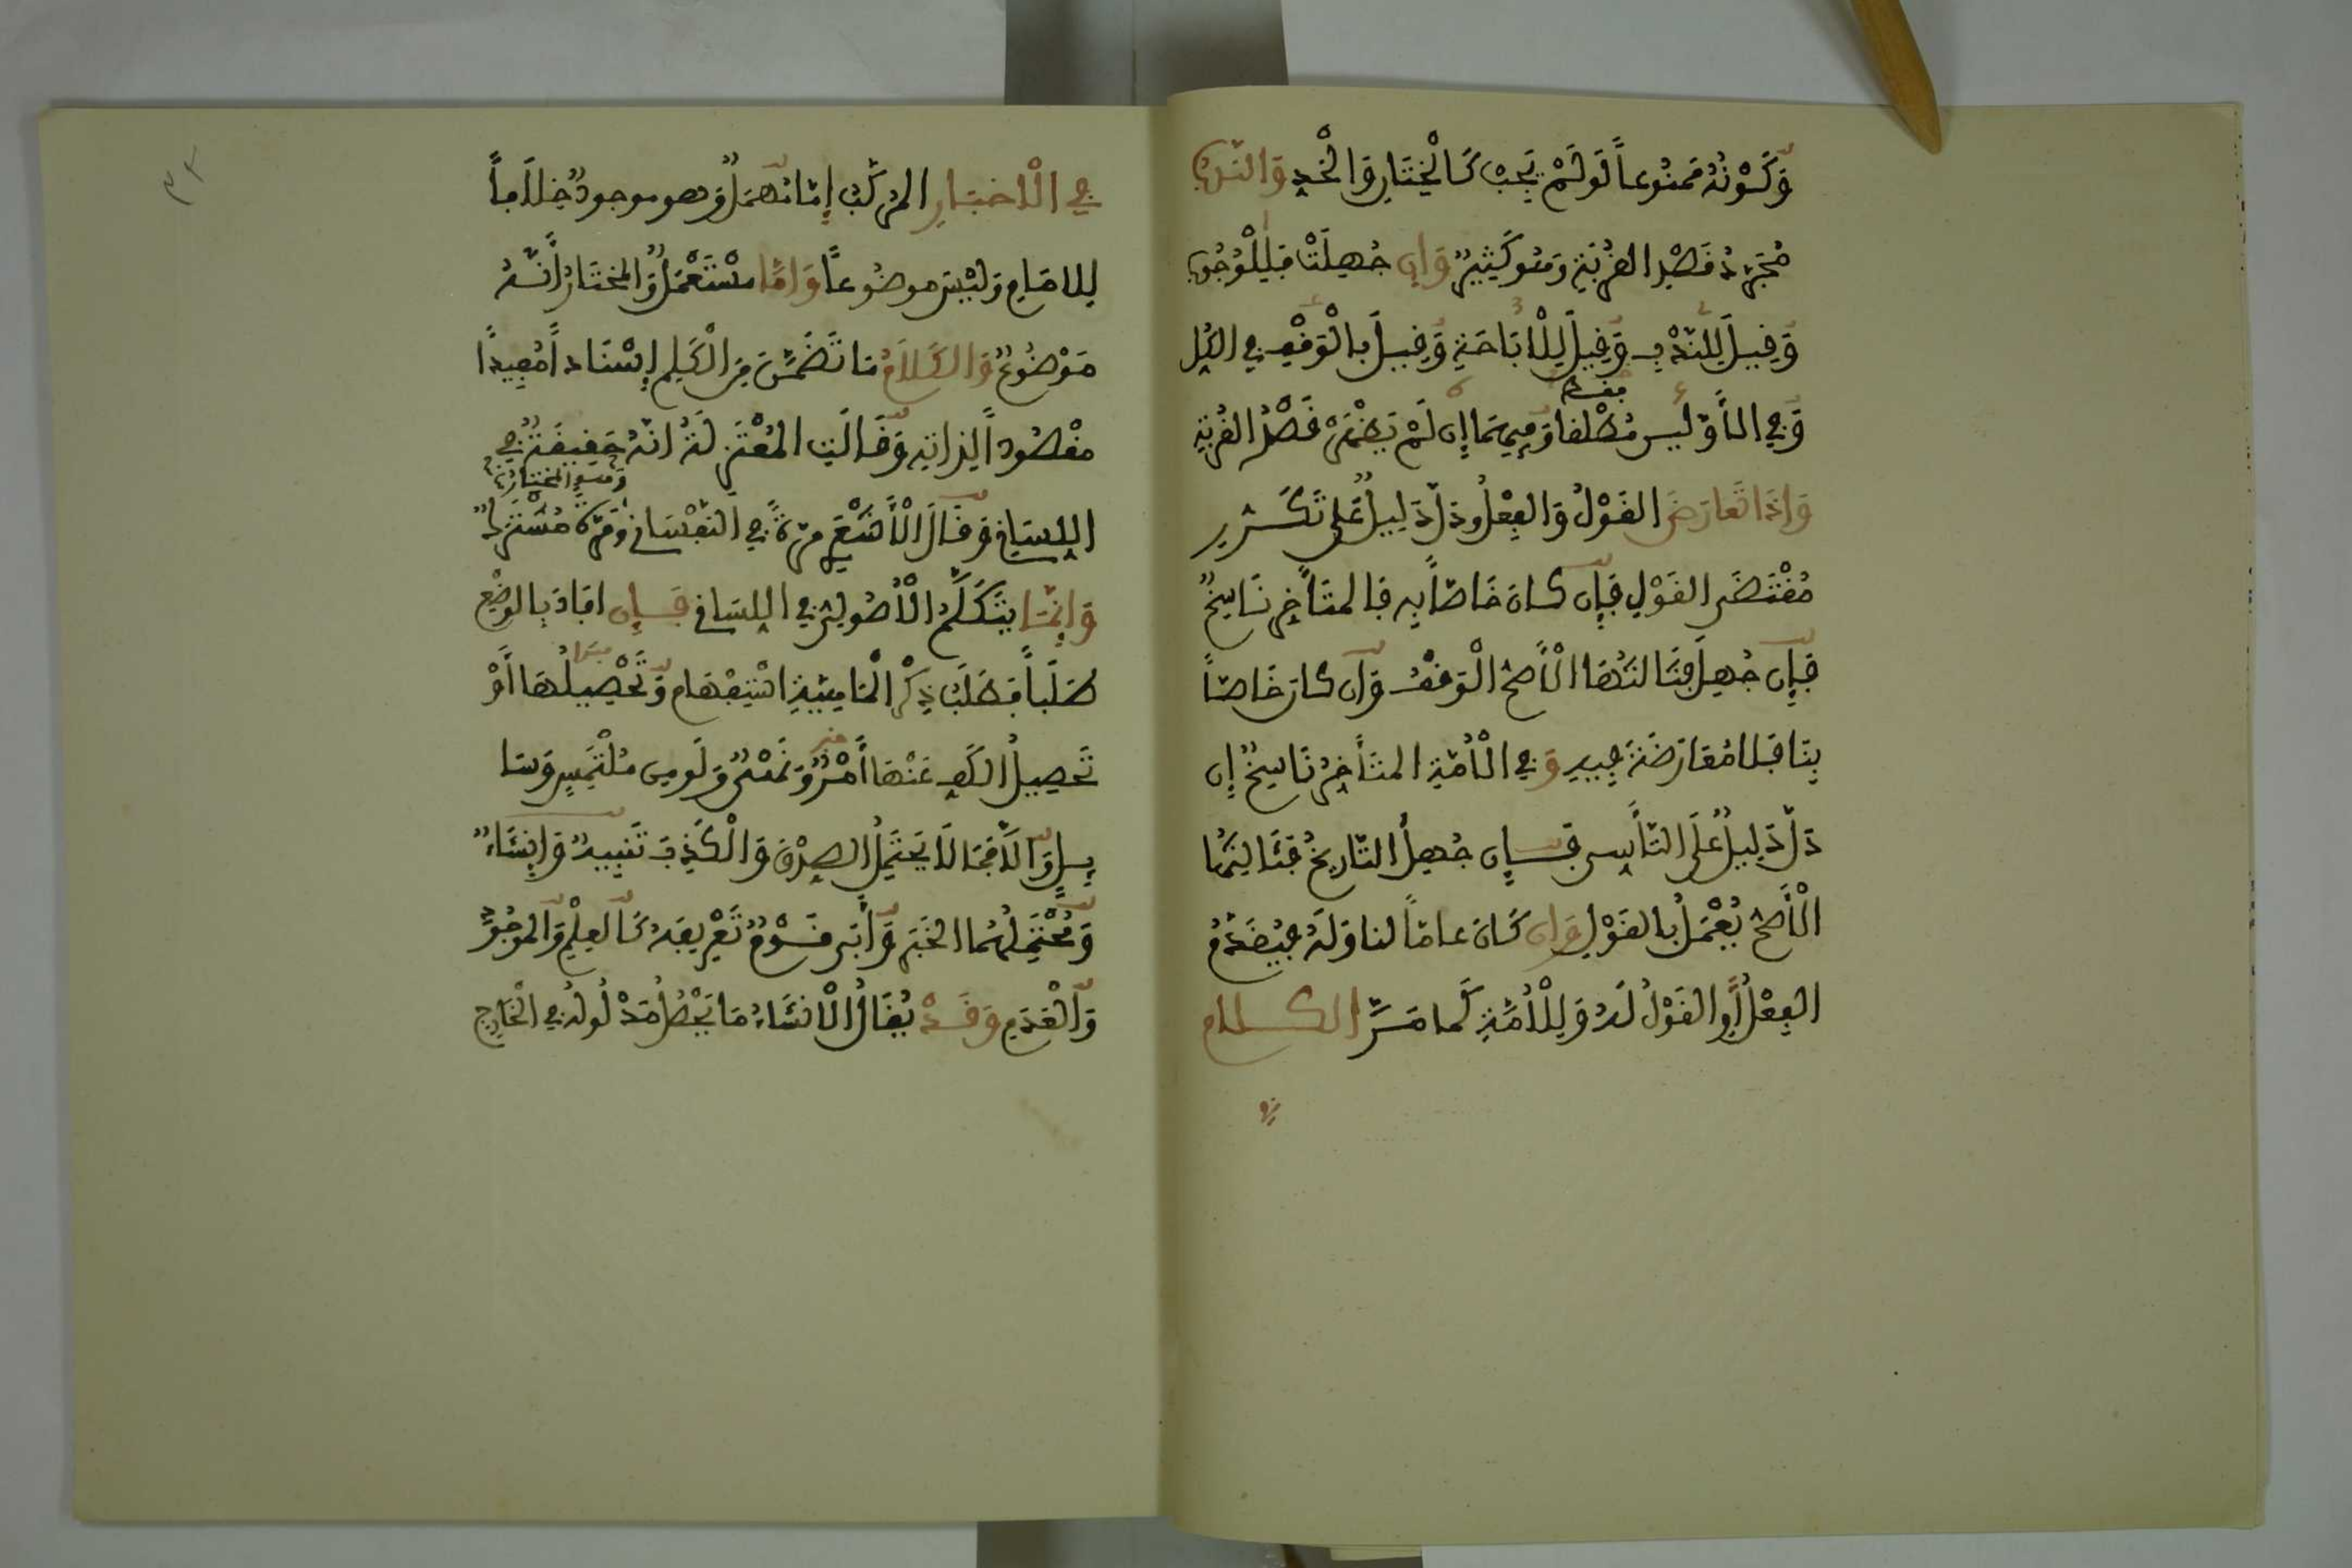 وَكَوْنُهُ مَمْنُوعاً لَوْ لَمْ يَجِبْ كَالْخِتَانِ وَالْحَدِّ وَالنَّدْبَ
مُجَرَّدُ قَصْدِ الْقُرْبَةِ وَهُوَ كَثِيرٌ وَإِن جُهِلَتْ فَلِلْوُجُوبِ
وَقِيلَ لِلنَّدْبِ وَقِيلَ لِلْإِبَاحَةِ وَقِيلَ بِالْوَقْفِ فِي الْكُلِّ
وَفِي الْأَوَّلَيْنِ مُطْلَقاً وَفِيهِمَا إِن لَمْ يَظْهَرْ قَصْدُ الْقُرْبَةِ
وَإِذَا تَعَارَضَ الْقَوْلُ وَالْفِعْلُ وَدَلَّ دَلِيلٌ عَلَى تَكَرُّرِ
مُقْتَضَى الْقَوْلِ فَإِن كَانَ خَاصّاً بِهِ فَالْمُتَأَخِّرُ نَاسِخٌ
فَإِن جُهِلَ فَثَالِثُهَا الْأَصَحُّ الْوَقْفُ وَإِن كَانَ خَاصّاً
بِنَا فَلَا مُعَارَضَةَ فِيهِ وَفِي الْأُمَّةِ الْمُتَأَخِّرُ نَاسِخٌ إِن
دَلَّ دَلِيلٌ عَلَى التَّأَسِّي فَإِن جُهِلَ التَّارِيخُ فَثَالِثُهَا
الْأَصَحُّ يُعْمَلُ بِالْقَوْلِ وَإِن كَانَ عَامّاً لَنَا وَلَهُ فَيُقَدَّمُ
الْفِعْلُ أَوِ الْقَوْلُ لَهُ وَلِلْأُمَّةِ كَمَا مَرَّ الْكَلَامُ
فِي الْأَخْبَارِ الْمُرَكَّبُ إِمَّا مُهْمَلٌ وَهُوَ مَوْجُودٌ خِلَافاً
لِلْإِمَامِ وَلَيْسَ مَوْضُوعاً وَإِمَّا مُسْتَعْمَلٌ وَالْمُخْتَارُ أَنَّهُ
مَوْضُوعٌ وَالْكَلَامُ مَا تَضَمَّنَ مِنَ الْكَلِمِ إِسْنَاداً مُفِيداً
مَقْصُوداً لِذَاتِهِ وَقَالَتِ الْمُعْتَزِلَةُ إِنَّهُ حَقِيقَةٌ فِي
اللِّسَانِي وَقَالَ الْأَشْعَرِي مَرَّةً فِي النَّفْسَانِي وَهُوَ الْمُخْتَارُ وَمَرَّةً مُشْتَرَكٌ
وَإِنَّمَا يَتَكَلَّمُ الْأُصُولِيُّ فِي اللِّسَانِي فَإِن أَفَادَ بِالْوَضْعِ
طَلَباً فَطَلَبُ ذِكْرِ الْمَاهِيَّةِ اسْتِفْهَامٌ وَتَحْصِيلُهَا أَوْ
تَحْصِيلُ الْكَفِّ عَنْهَا أَمْرٌ وَنَهْيٌ وَلَوْ مِن مُلْتَمِسٍ وَسَا
ئِلٍ وَإِلَّا فَمَا لَا يَحْتَمِلُ الصِّدْقَ وَالْكَذِبَ تَنْبِيهٌ وَإِنْشَاءٌ
وَمُحْتَمِلُهُمَا الْخَبَرُ وَأَبَى قَوْمٌ تَعْرِيفَهُ كَالْعِلْمِ وَالْوُجُودِ
وَالْعَدَمِ وَقَدْ يُقَالُ الْإِنْشَاءُ مَا يَحْصُلُ مَدْلُولُهُ فِي الْخَارِجِ